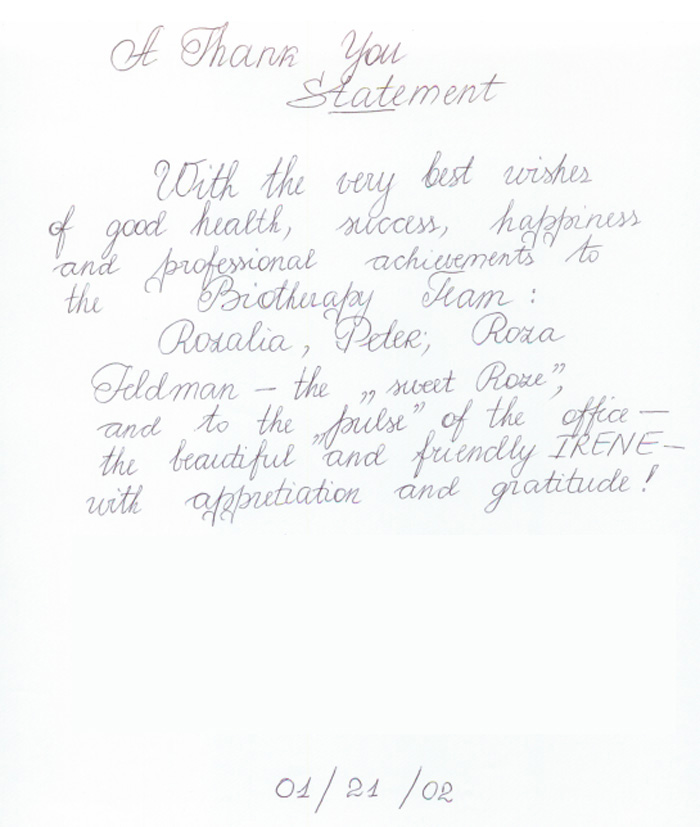 A Thank You
Statement
With the very best wishes
of good health, success, happiness
and professional achievements to
the Biotherapy Team :
Rozalia, Peter, Roza
Feldman – the „sweet Roze”,
and to the „pulse” of the office –
the beautiful and friendly IRENE –
with appretiation and gratitude!
01/21/02